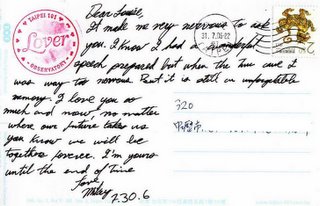 Dear Louise,
It make me very nervous to ask
you. I know I had a wonderful
speech prepared but when the time came I
was way too nervous. But it is still an unforgetable
memory. I love you so
much and now, no matter
where our future takes us
you know we will be
together forever. I'm yours
until the end of Time
Love
Miley
7.30.6
TAIPEI 101
Lover
OBSERVATORY
31.7.06-22
2
320
中壢市